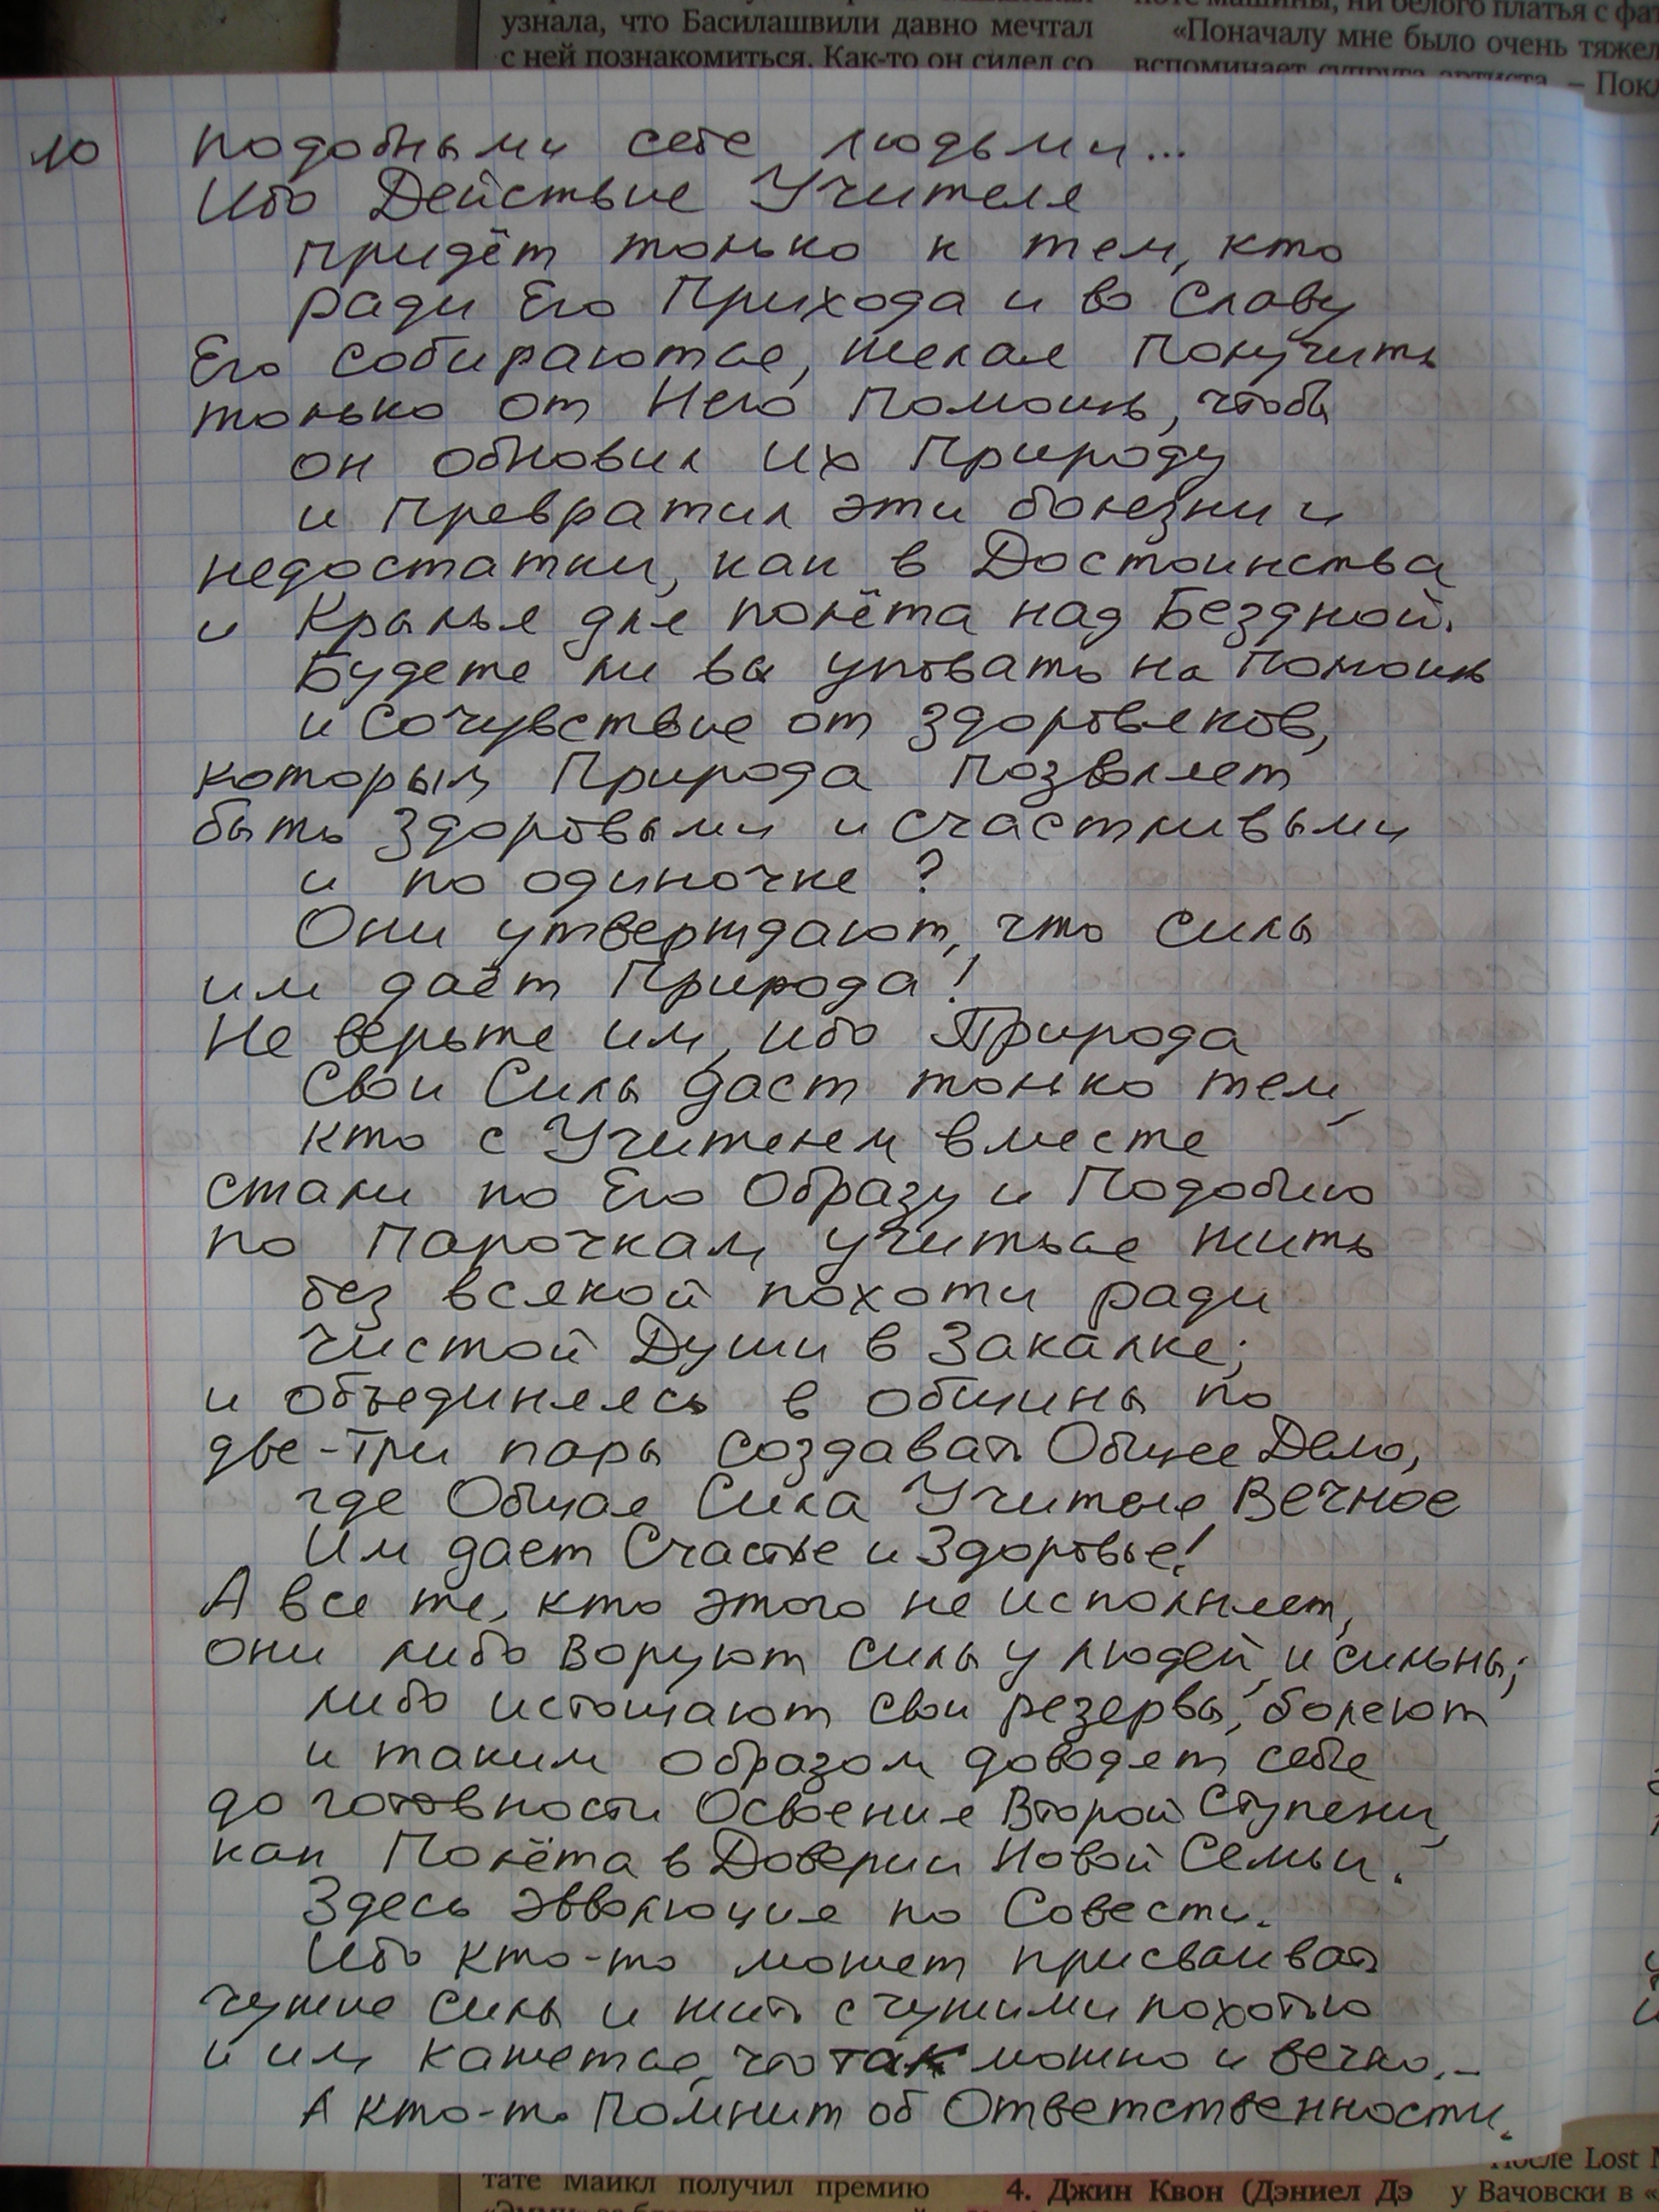 узнала, что Басилашвили давно мечтал
с ней познакомиться. Как-то он сидел со
«Поначалу мне было очень тяжел
вспоминает супруга артиста. – Покл
10
подобными себе людьми...
Ибо Действие Учителя
придёт только к тем, кто
ради Его Прихода и во Славу
Его собираются, желая Получить
только от Него Помощь, чтобы
он обновил их Природу
и превратил эти болезни и
недостатки, как в Достоинства
и Крылья для полёта над Бездной.
Будете ли вы уповать на Помощь
и сочувствие от здоровяков,
которым Природа позволяет
быть здоровыми и счастливыми
и по одиночке?
Они утверждают, что силы
им даёт Природа!
Не верьте им, ибо Природа
Свои Силы даст только тем,
кто с Учителем вместе
стали по Его Образу и Подобию
по Парочкам учиться жить
без всякой похоти ради
Чистой Души в Закалке;
и объединяясь в общины по
две-три пары создавать Общее Дело,
где Общая Сила Учителя Вечное
Им дает Счастье и Здоровье!
А все те, кто этого не исполняет,
они либо воруют силы у людей, и сильны;
либо истощают свои резервы, болеют
и таким образом доводят себя
до готовности Освоения Второй Ступени,
как Полёта в Доверии Новой Семьи.
Здесь эвволюция по Совести.
Ибо кто-то может присваивать
чужие силы и жить с чужими похотью
и им кажется, что так можно и вечно.–
А кто-то Помнит об Ответственности.
тате Майкл получил премию
4. Джин Квон (Дэниел Дэ
после Lost
у Вачовски в «